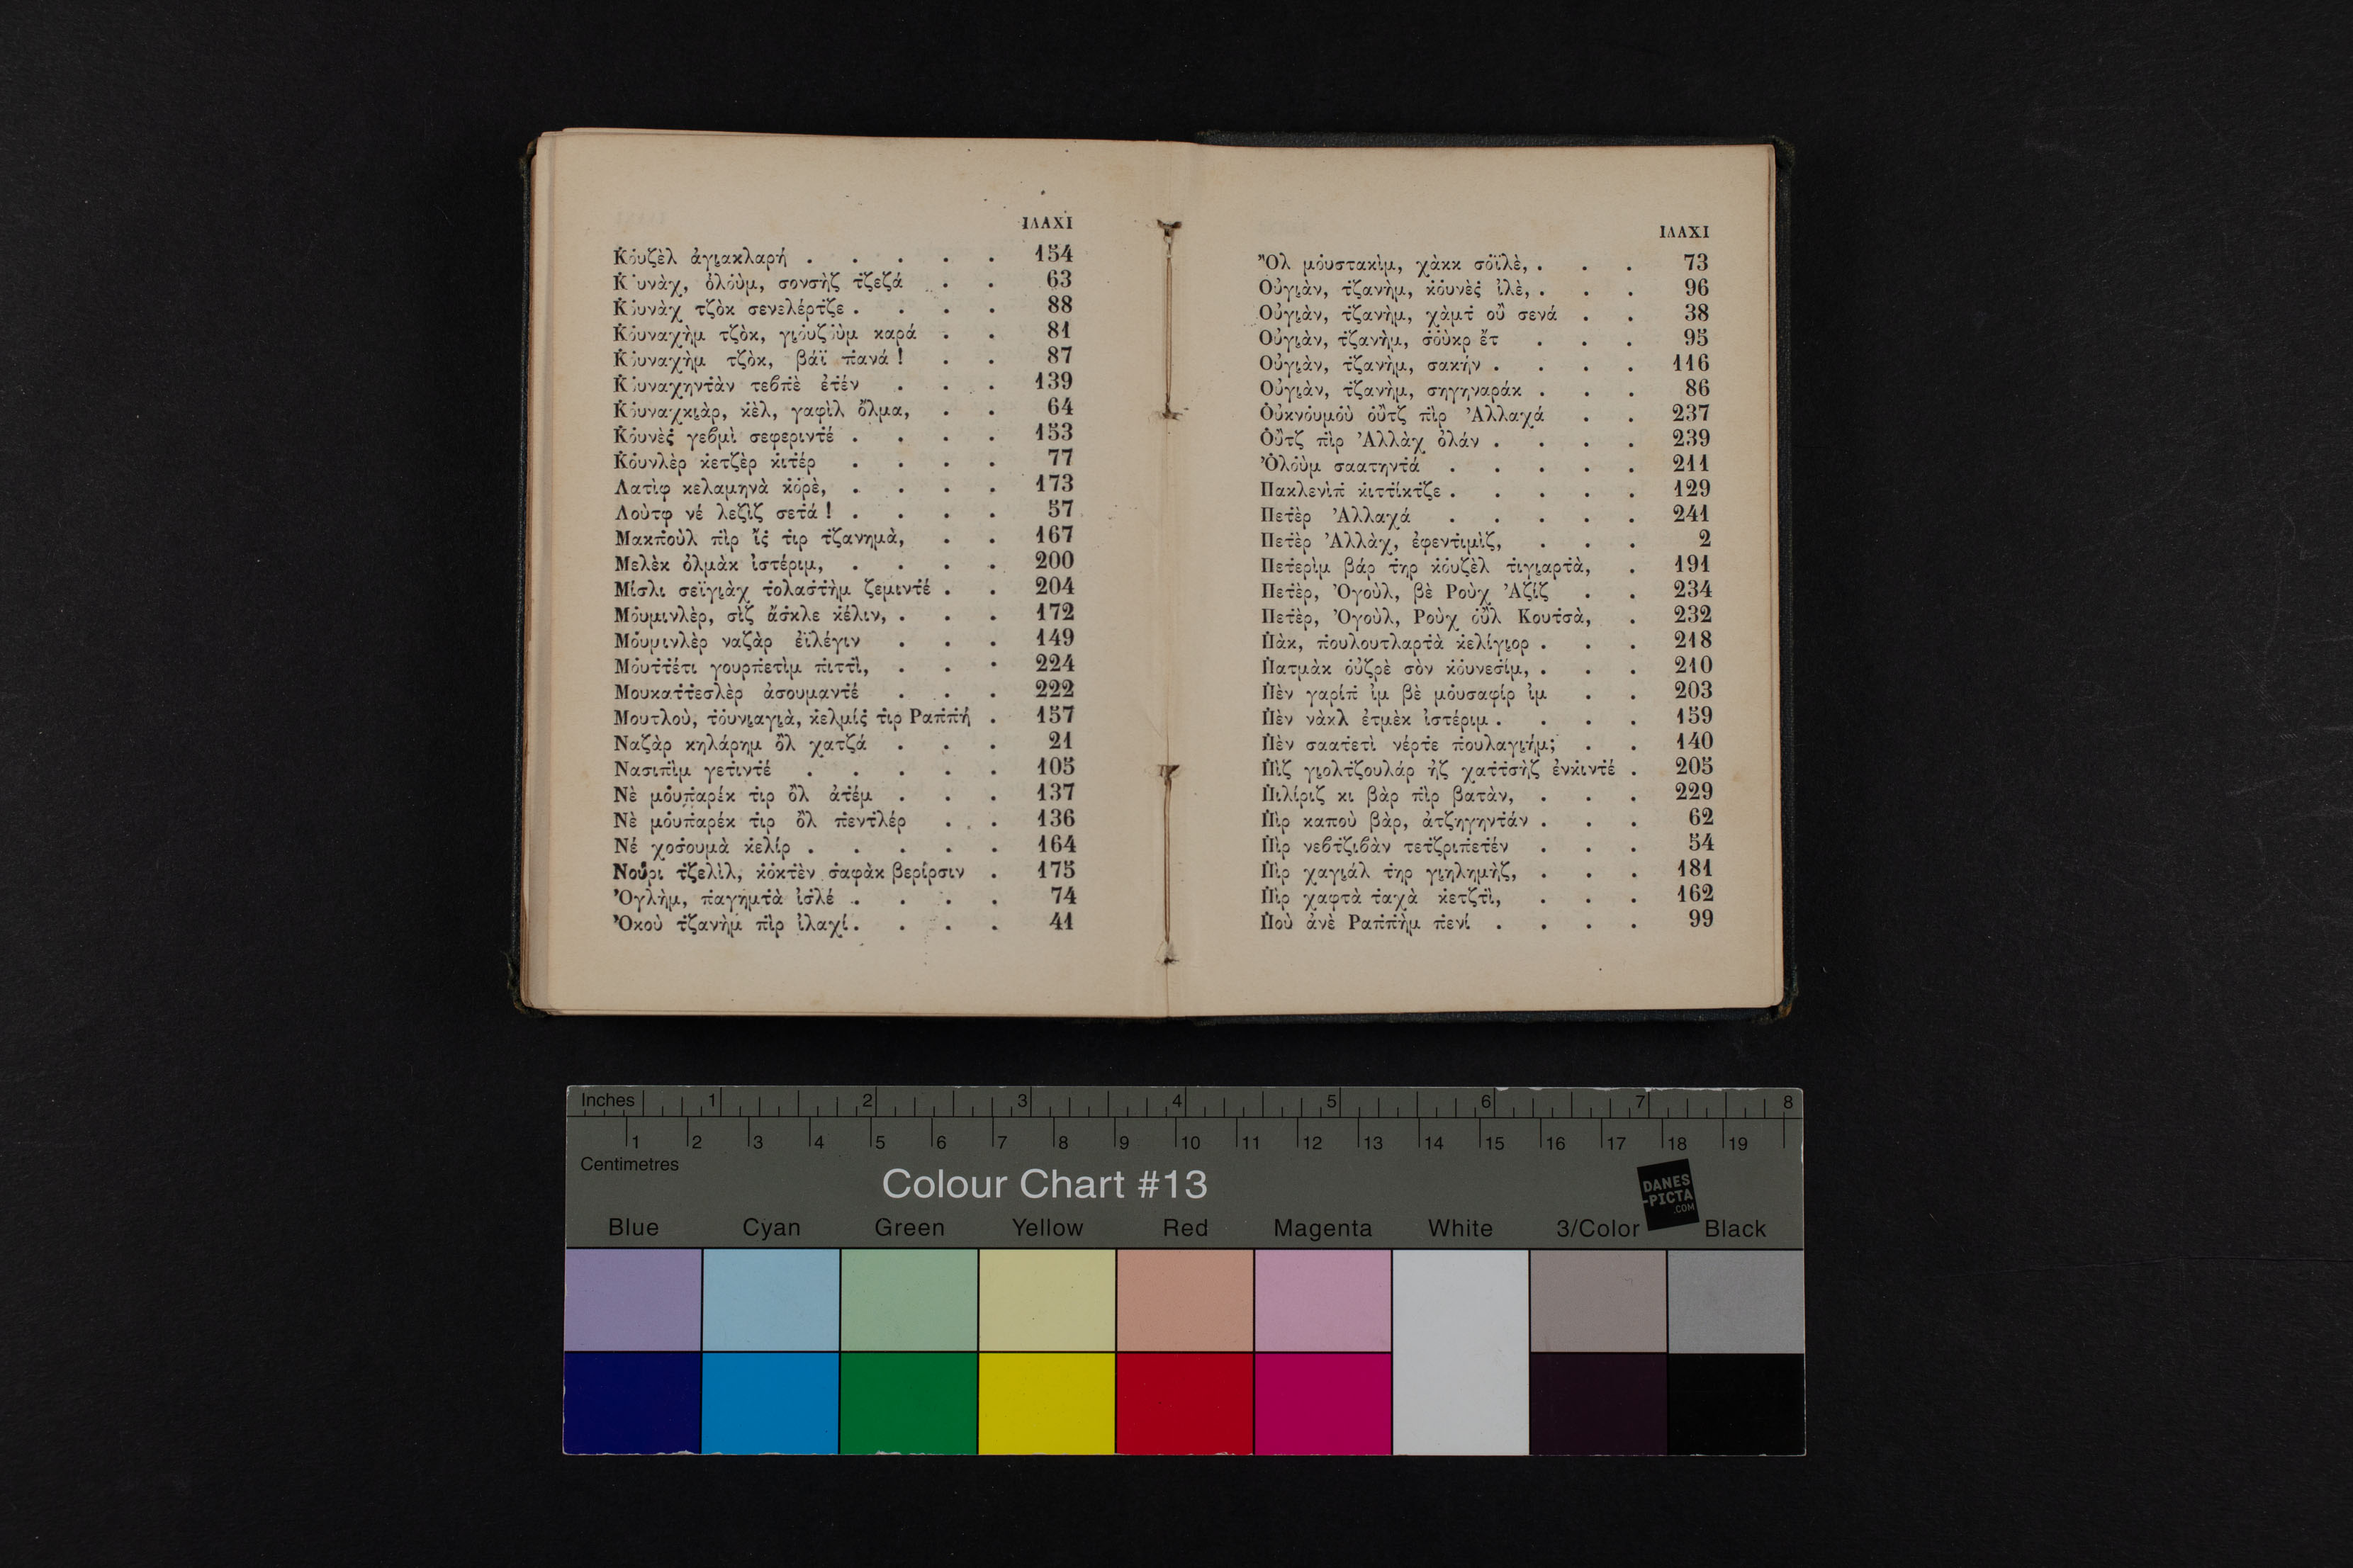 ΙΛΑΧΙ
Κ̇ο̇υζὲλ ἀγι̡ακλαρή . . . . . 154
Κ̇ο̇υνὰχ, ὀ̇λο̇ὺμ, σονσὴζ τ̇ζεζά . . 63
Κ̇ο̇υνὰχ τζὸκ σενελέρτ̇ζε . . . . 88
Κ̇ο̇υναχὴμ τζὸκ, γι̡ο̇υζο̇ὺμ καρά . . 81
Κ̇ο̇υναχὴμ τζὸκ, βάϊ π̇ανά ! . . 87
Κ̇ο̇υναχηντ̇ὰν τεϐπ̇ὲ ἐτ̇έν . . . 139
Κ̇ο̇υναχκι̡ὰρ, κ̇ὲλ, γαφὶλ ὄλμα, . . 64
Κ̇ο̇υνὲς̇ γεϐμὶ σεφεριντ̇έ . . . . 153
Κ̇ο̇υνλὲρ κ̇ετζὲρ κ̇ιτ̇έρ . . . . 77
Λατὶφ κελαμηνὰ κ̇ο̇ρὲ, . . . . 173
Λοὺτφ νέ λεζὶζ σετ̇ά ! . . . . 57
Μακπ̇οὺλ π̇ὶρ ἴς̇ τ̇ιρ τ̇ζανημὰ, . . 167
Μελὲκ ὀλμὰκ ἰστέριμ, . . . . 200
Μίσλι σεϊγι̡ὰχ τ̇ολαστ̇ὴμ ζεμιντ̇έ . . 204
Μο̇υμινλὲρ, σὶζ ἄσ̇κλε κ̇έλιν, . . . 172
Μο̇υμινλὲρ ναζὰρ ἐϊλέγιν . . . 149
Μο̇υτ̇τ̇έτι γουρπ̇ετὶμ π̇ιττ̇ὶ, . . . 224
Μουκατ̇τ̇εσλὲρ ἀσουμαντ̇έ . . . 222
Μουτλοὺ, τ̇ο̇υνι̡αγι̡ὰ, κ̇ελμίς̇ τ̇ιρ Ραπ̇π̇ή . 157
Ναζὰρ κηλάρημ ὂλ χατζά . . . 21
Νασιπ̇ὶμ γετ̇ιντ̇έ . . . . . 105
Νὲ μο̇υπ̇αρέκ τ̇ιρ ὂλ ἀτ̇έμ . . . 137
Νὲ μο̇υπ̇αρέκ τ̇ιρ ὂλ π̇εντ̇λέρ . . 136
Νέ χοσ̇ουμὰ κ̇ελίρ . . . . . 164
Νοῦρι τ̇ζελὶλ, κ̇ο̇κτ̇ὲν σ̇αφὰκ βερίρσιν . 175
Ὀγλὴμ, π̇αγημτ̇ὰ ἰσ̇λέ . . . . 74
Ὀκοὺ τ̇ζανὴμ π̇ὶρ ἰλαχί . . . . 41
ΙΛΑΧΙ
Ὂλ μο̇υστακὶμ, χὰκκ σο̇ϊλὲ, . . . 73
Οὐγι̡ὰν, τ̇ζανὴμ, κ̇ο̇υνὲς̇ ἰλὲ, . . . 96
Οὐγι̡ὰν, τ̇ζανὴμ, χὰμτ̇ οὒ σενά . . 38
Οὐγι̡ὰν, τ̇ζανὴμ, σ̇ο̇ὺκρ ἔτ . . . 95
Οὐγι̡ὰν, τ̇ζανὴμ, σακήν . . . . 116
Οὐγι̡ὰν, τ̇ζανὴμ, σηγηναράκ . . . 86
Ο̇ὐκνο̇υμο̇ὺ ο̇ὔτζ π̇ὶρ Ἀλλαχά . . 237
Ο̇ὔτζ π̇ὶρ Ἀλλὰχ ὀ̇λάν . . . . 239
Ὀ̇λο̇ὺμ σαατηντ̇ά . . . . . 211
Πακλενὶπ̇ κ̇ιττ̇ίκτ̇ζε . . . . . 129
Πετ̇ὲρ Ἀλλαχά . . . . . 241
Πετ̇ὲρ Ἀλλὰχ, ἐφεντ̇ιμὶζ, . . . 2
Πετ̇ερὶμ βάρ τ̇ηρ κ̇ο̇υζὲλ τ̇ιγι̡αρτ̇ὰ, . 191
Πετ̇ὲρ, Ὀγοὺλ, βὲ Ροὺχ Ἀζίζ . . 234
Πετ̇ὲρ, Ὀγοὺλ, Ροὺχ ο̇ὒλ Κουτ̇σὰ, . 232
Π̇ὰκ, π̇ουλουτλαρτ̇ὰ κ̇ελίγι̡ορ . . . 218
Π̇ατμὰκ ο̇ὐζρὲ σὸν κ̇ο̇υνεσ̇ίμ, . . . 210
Π̇ὲν γαρίπ̇ ἰμ βὲ μο̇υσαφίρ ἰμ . . 203
Π̇ὲν νὰκλ ἐτμὲκ ἰστέριμ . . . . 159
Π̇ὲν σαατ̇ετ̇ὶ νέρτ̇ε π̇ουλαγι̡ήμ; . . 140
Π̇ὶζ γι̡ολτ̇ζουλάρ ἠζ χατ̇τ̇σὴζ ἐνκ̇ιντ̇έ . 205
Π̇ιλίριζ κι βὰρ π̇ὶρ βατὰν, . . . 229
Π̇ὶρ καποὺ βὰρ, ἀτζηγηντ̇άν . . . 62
Π̇ὶρ νεϐτ̇ζιϐὰν τετ̇ζριπ̇ετ̇έν . . . 54
Π̇ὶρ χαγι̡άλ τ̇ηρ γι̡ηλημὴζ, . . . 181
Π̇ὶρ χαφτὰ τ̇αχὰ κ̇ετζτ̇ὶ, . . . 162
Π̇οὺ ἀνὲ Ραπ̇π̇ὴμ π̇ενί . . . . 99
Inches 1 2 3 4 5 6 7 8
1 2 3 4 5 6 7 8 9 10 11 12 13 14 15 16 17 18 19
Centimetres
Colour Chart #13
DANES
-PICTA
.COM
Blue Cyan Green Yellow Red Magenta White 3/Color Black